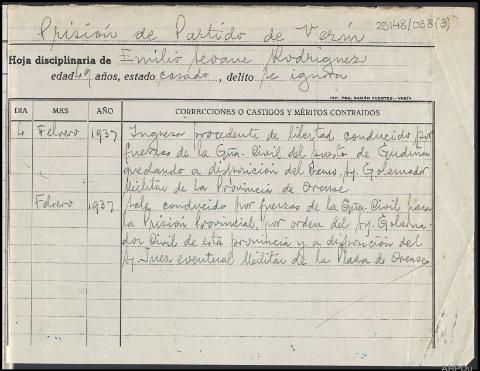 Prisión de Partido de Verín
23148/038(3)
Hoja disciplinaria de Emilio Seoane Rodriguez
edad 49 años, estado casado, delito se ignora
IMP. VDA. RAMÓN FUENTES.-VERÍN
DIA MES AÑO CORRECCIONES O CASTIGOS Y MÉRITOS CONTRAIDOS
4 Febrero 1937 Ingresa procedente de libertad conducido por
fuerzas de la Gña. Civil del puesto de Gudiña
quedando a disposición del Excmo. Sr. Gobernador
Militar de la Provincia de Orense
Febrero 1937 Sale conducido por fuerzas de la Gña. Civil para
la Prisión Provincial, por orden del Sr. Goberna-
dor Civil de esta provincia y a disposición del
Sr. Juez eventual Militar de la Plaza de Orense
AHPOu